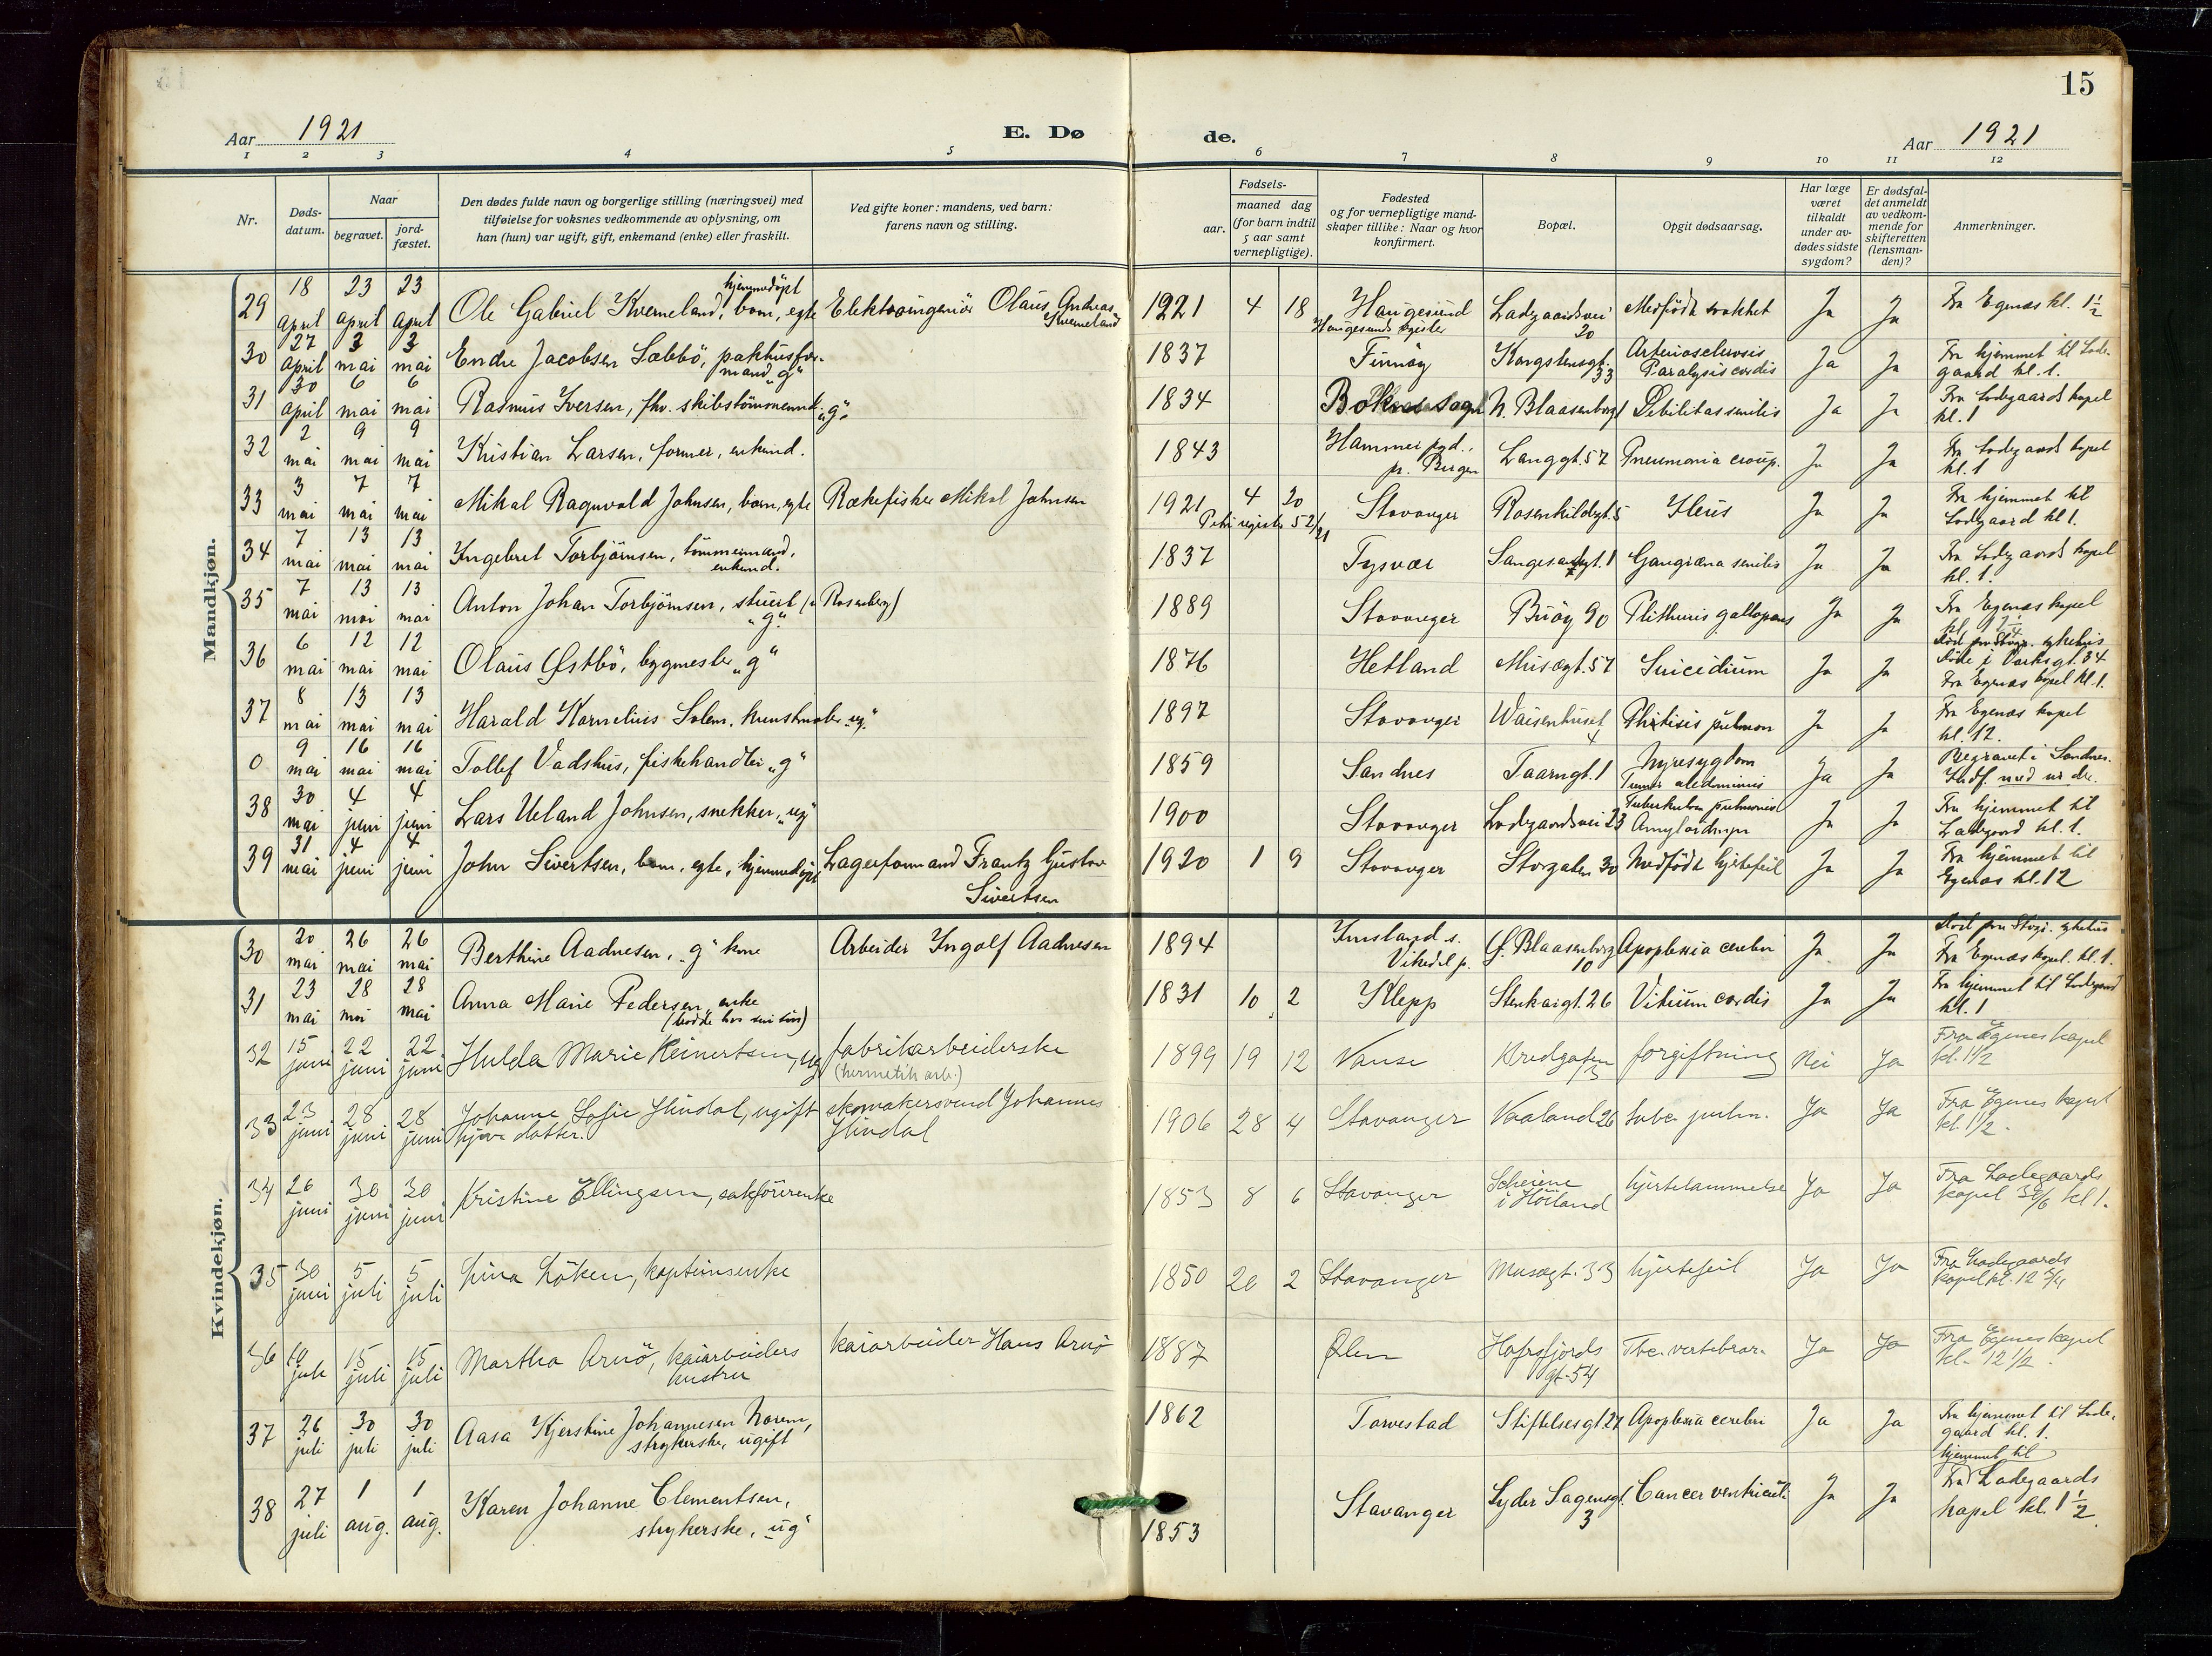 15
Aar 1921
E. Døde.
Aar 1921
1 2 3 4 5 6 7 8 9 10 11 12
Nr.
Dødsdatum.
Naar
begravet.
jordfæstet.
Den dødes fulde navn og borgerlige stilling (næringsvei) med
tilføielse for voksnes vedkommende av oplysning, om
han (hun) var ugift, gift, enkemand (enke) eller fraskilt.
Ved gifte koner: mandens, ved barn:
farens navn og stilling.
Fødsels-
aar.
maaned dag
(for barn indtil
5 aar samt
vernepligtige).
Fødested
og for vernepligtige mand-
skaper tillike: Naar og hvor
konfirmert.
Bopæl.
Opgit dødsaarsag.
Har læge
været
tilkaldt
under av-
dødes sidste
sygdom?
Er dødsfal-
det anmeldt
av vedkom-
mende for
skifteretten
(lensman-
den)?
Anmerkninger.
Mandkjøn.
29 18 april 23 april 23 april Ole Gabriel Kverneland, barn, egte hjemmedøpt Elektroingeniør Olaus Andreas Kverneland 1921 4 18 Haugesund Haugesunds register Ladegaardsvei 20 Medfødt svakhet Ja Ja Fra Egenæs kl. 1½
30 27 april 3 mai 3 mai Endre Jacobsen Sæbbö, pakhusformand "g" 1837 Finnöy Kongstensgt. 33 Arteriosclerosis Paralysis cordis Ja Ja Fra hjemmet til Lodegaard kl. 1.
31 30 april 6 mai 6 mai Rasmus Iversen, fhv. skibstömmermd. "g" 1834 Bokn N. Blaasenborg 1 Debilitas senilis Ja Ja Fra Lodegaards kapel kl. 1
32 2 mai 9 mai 9 mai Kristian Larsen, former, enkemd. 1843 Hammer pgd., pr. Bergen Langgt. 57 Pneumonia croup. Ja Ja Fra Lodegaards kapel kl. 1
33 3 mai 7 mai 7 mai Mikal Ragnvald Johnsen, barn, egte Rækefisker Mikal Johnsen 1921 4 20 Petri register 52/21 Stavanger Rosenkildegt. 5 Ileus Ja Ja Fra hjemmet til Lodegaard kl 1.
34 7 mai 13 mai 13 mai Ingebret Torbjörnsen, tömmermand, enkemd. 1837 Tysvær Langesandgt. 1 Gangræna senilis Ja Ja Fra Lodegaards kapel kl. 1.
35 7 mai 13 mai 13 mai Anton Johan Torbjörnsen, stuert (Rosenberg) "g" 1889 Stavanger Buöy 90 Ja Ja Fra Egenæs kapel
36 6 mai 12 mai 12 mai Olaus Østbö, bygmester "g" 1876 Hetland Musægt. 57 Suicidium Ja Ja Död paa Stvgr. sykehus Fra Egenæs kapel kl. 1.
37 8 mai 13 mai 13 mai Harald Kornelius Solem, kunstmaler "ug" 1897 Stavanger Waisenhuset 4 Phtisis pulmon Ja Ja Fra Egenæs kapel kl. 12.
0 9 mai 16 mai 16 mai Tollef Vadshus, fiskehandler "g" 1859 Sandnes Taarngt. 1 Nyresygdom Tumor abdominis Ja Ja Begravet i Sandnes.
38 30 mai 4 juni 4 juni Lars Ueland Johnsen, snekker, "ug" 1900 Stavanger Lodegaardsvei 23 Tuberkulos pulmonis Ja Ja Fra hjemmet til Ladegaard kl. 1.
39 31 mai 4 juni 4 juni John Sivertsen, barn, egte, hjemmedöpt Lagerformand Frantz Gustav Sivertsen 1920 1 9 Stavanger Storgaten 30 Medfödt hjertefeil Ja Ja Fra hjemmet til Egenæs kl. 12
Kvindekjøn.
30 20 mai 26 mai 26 mai Berthine Aadnesen, "g" kone Arbeider Ingolf Aadnesen 1894 Imsland s. Vikedal p. Ø. Blaasenborg 10 Apoplexia cerebri Ja Ja Död paa Stvgr. sykehus Fra Egenæs kapel. kl. 1.
31 23 mai 28 mai 28 mai Anna Marie Pedersen, enke (bodde hos sin sön) 1831 10 2 Klepp Stenkargt. 26 Vitium cordis Ja Ja Fra hjemmet til Lodegaard kl. 1
32 15 juni 22 juni 22 juni Hulda Marie Reinertsen, ug fabrikarbeiderske (hermetik arb.) 1899 19 12 Vanse Bredgaten 13 forgiftning Nei Ja Fra Egenes kapel kl. 1½
33 23 juni 28 juni 28 juni Johanne Sofie Hindal, ugift hjv. datter. skomakersvend Johannes Hindal 1906 28 4 Stavanger Vaaland 26 tube. pulm. Ja Ja Fra Egenes kapel kl. 1½.
34 26 juni 30 juni 30 juni Kristine Ellingsen, sakförerenke 1853 8 6 Stavanger Scheiene i Höiland hjertelammelse Ja Ja Fra Ladegaards kapel 30/6 kl 1.
35 30 juni 5 juli 5 juli Lina Löken, kapteinsenke 1850 20 2 Stavanger Musægt. 33 hjertefeil Ja Ja Fra Ladegaards kapel kl. 12
36 10 juli 15 juli 15 juli Martha Arnö, kaiarbeiders hustru kaiarbeider Hans Arnö 1887 Ølen Hafrsfjords gt. 54 Tbc. vertebrar. Ja Ja Fra Egenes kapel kl. 12½.
37 26 juli 30 juli 30 juli Aasa Kjerstine Johannesen Norem, strykerske, ugift 1862 Torvestad Stiftelsesgt 27 Apoplexia cerebri Ja Ja Fra hjemmet til Lodegaard kl. 1.
38 27 juli 1 aug. 1 aug. Karen Johanne Clementsen, strykerske, "ug" 1853 Stavanger Lyder Sagensgt. 3 Cancer ventriculi Ja Ja Fra hjemmet til Ladegaards kapel kl. 1½.